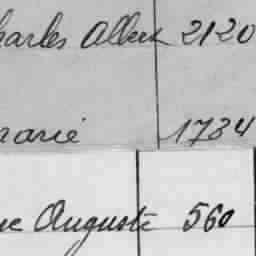 harles Albert 2120
marie 1734
ue Auguste 560